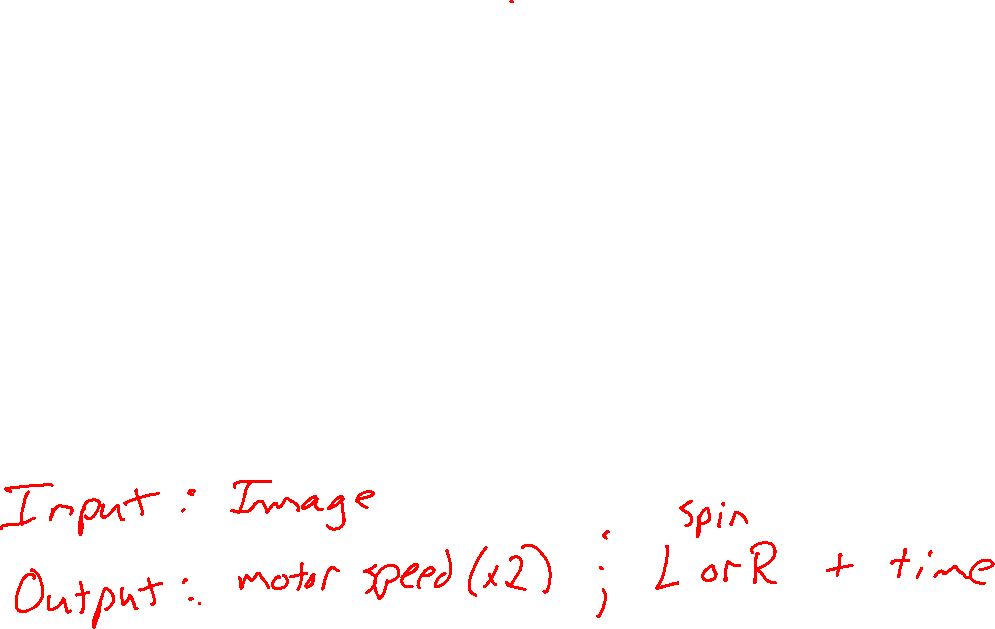 Input: Image
spin
Output: motor speed (x2) ; L or R + time